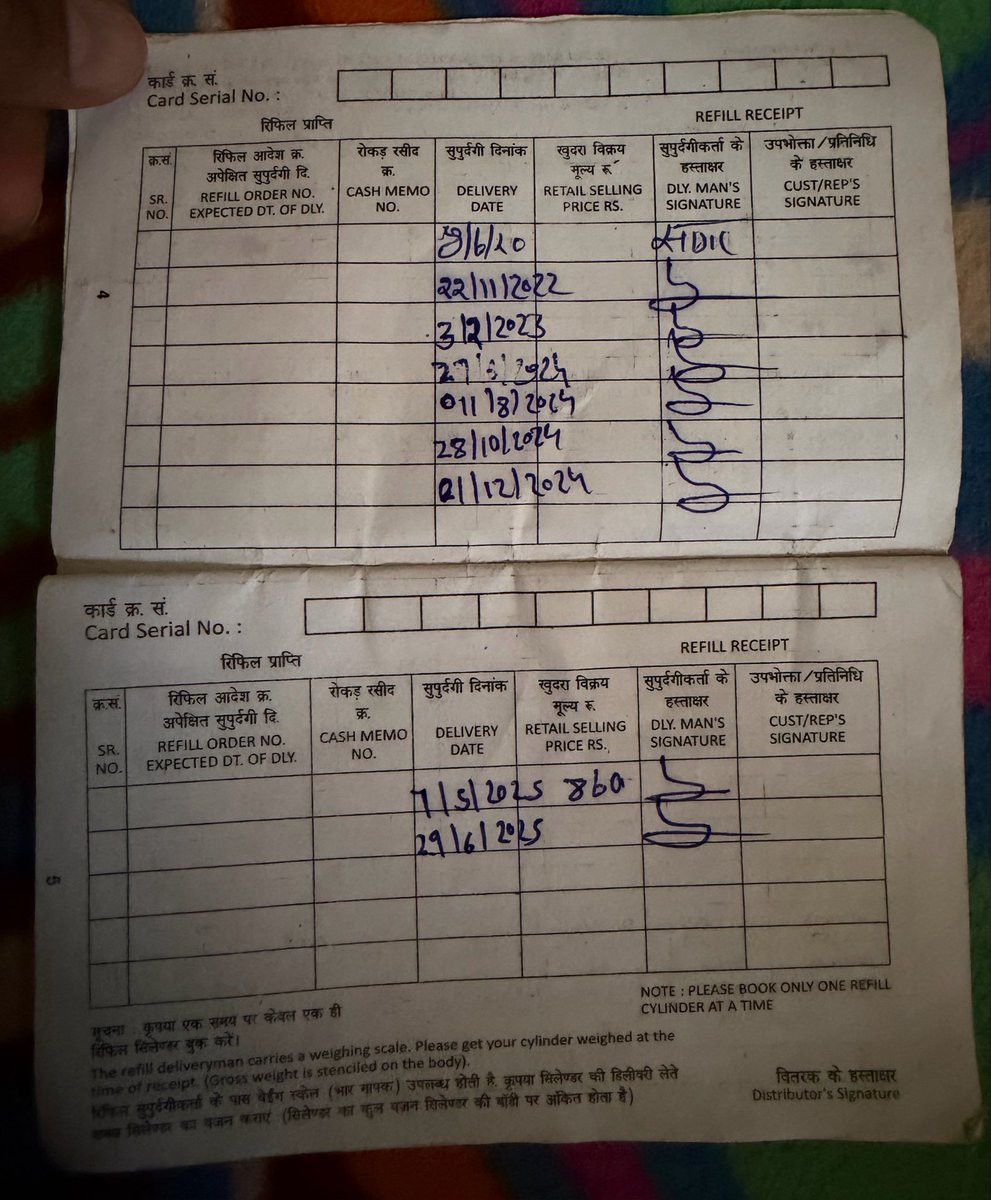 कार्ड क्र. सं.
Card Serial No. :
रिफिल प्राप्ति REFILL RECEIPT
क्र.सं. रिफिल आदेश क्र. रोकड़ रसीद सुपुर्दगी दिनांक खुदरा विक्रय सुपुर्दगीकर्ता के उपभोक्ता/प्रतिनिधि
अपेक्षित सुपुर्दगी दि. क्र. मूल्य रू. हस्ताक्षर के हस्ताक्षर
SR. REFILL ORDER NO. CASH MEMO DELIVERY RETAIL SELLING DLY. MAN'S CUST/REP'S
NO. EXPECTED DT. OF DLY. NO. DATE PRICE RS. SIGNATURE SIGNATURE
22/11/2022
3/2/2023
2024
01/8/2024
28/10/2024
21/12/2024
4
कार्ड क्र. सं.
Card Serial No. :
रिफिल प्राप्ति REFILL RECEIPT
क्र.सं. रिफिल आदेश क्र. रोकड़ रसीद सुपुर्दगी दिनांक खुदरा विक्रय सुपुर्दगीकर्ता के उपभोक्ता/प्रतिनिधि
अपेक्षित सुपुर्दगी दि. क्र. मूल्य रू. हस्ताक्षर के हस्ताक्षर
SR. REFILL ORDER NO. CASH MEMO DELIVERY RETAIL SELLING DLY. MAN'S CUST/REP'S
NO. EXPECTED DT. OF DLY. NO. DATE PRICE RS. SIGNATURE SIGNATURE
7/5/2025 860
29/6/2025
5
NOTE : PLEASE BOOK ONLY ONE REFILL
CYLINDER AT A TIME
सूचना : कृपया एक समय पर केवल एक ही
रिफिल सिलेण्डर बुक करें।
The refill deliveryman carries a weighing scale. Please get your cylinder weighed at the
time of receipt. (Gross weight is stenciled on the body).
रिफिल सुपुर्दगीकर्ता के पास वेईंग स्केल (भार मापक) उपलब्ध होती है. कृपया सिलेण्डर की डिलीवरी लेते
समय सिलेण्डर का वजन कराएं (सिलेण्डर का कुल वज़न सिलेण्डर की बॉडी पर अंकित होता है)
वितरक के हस्ताक्षर
Distributor's Signature